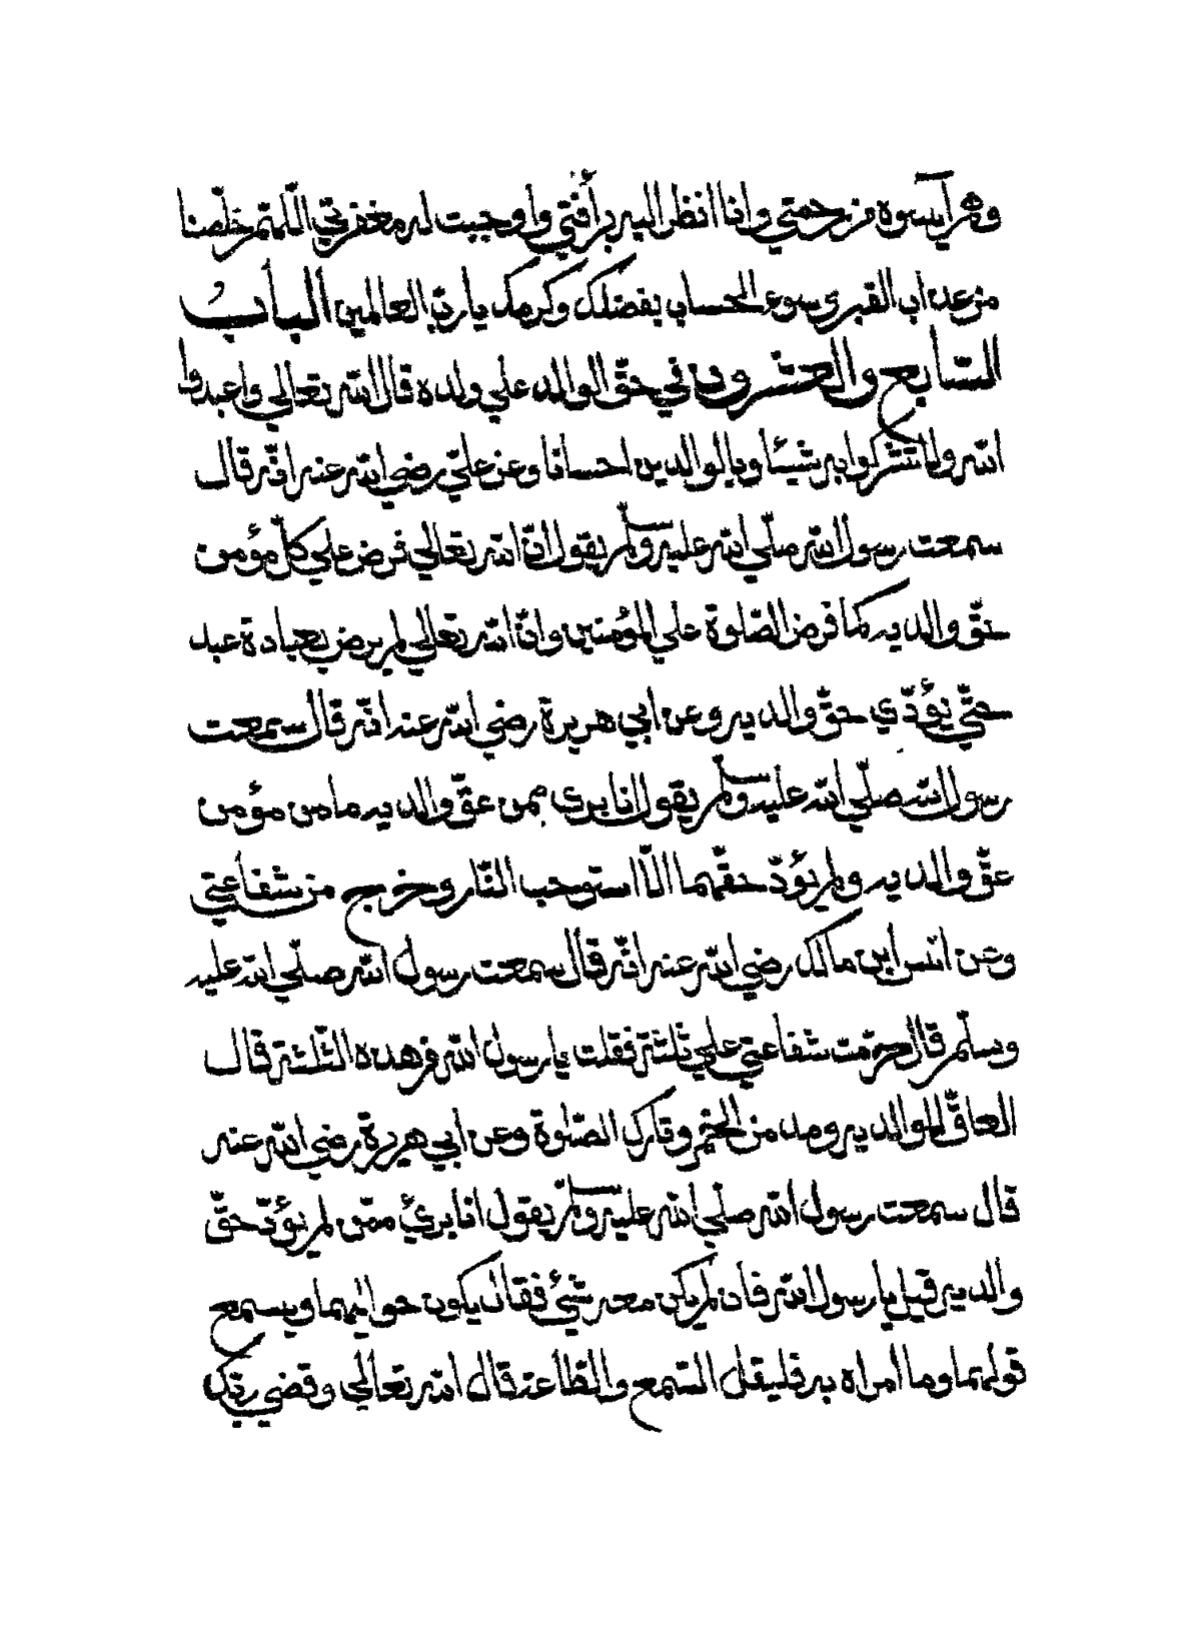 وهم آيسوه من رحمتي وانا انظر اليه برأفتي واوجبت له مغفرتي اللّهمّ خلّصنا
من عذاب القبر وسوء الحساب بفضلك وكرمك يا ربّ العالمين الباب
السّابع والعشرون في حقّ الوالد علي ولده قال الله تعالي واعبدوا
الله ولا تشركوا به شيئا وبالوالدين احسانا وعن عليّ رضي الله عنه انّه قال
سمعت رسول الله صلّي الله عليه وسلّم يقول انّ الله تعالي فرض علي كلّ مؤمن
حقّ والديه كما فرض الصّلوة علي المؤمنين وانّ الله تعالي لم يرض بعبادة عبد
حتّي يؤدّي حقّ والديه وعن ابي هريرة رضي الله عنه انّه قال سمعت
رسول الله صلّي الله عليه وسلّم يقول انا بري ممن عقّ والديه ما من مؤمن
عقّ والديه ولم يؤدّ حقّهما الّا استوجب النّار وخرج من شفاعتي
وعن انس ابن مالك رضي الله عنه انّه قال سمعت رسول الله صلّي الله عليه
وسلّم قال حرّمت شفاعتي علي ثلثة فقلت يا رسول الله من هذه الثّلثة قال
العاقّ لوالديه ومدمن الخمر وتارك الصّلوة وعن ابي هريرة رضي الله عنه
قال سمعت رسول الله صلّي الله عليه وسلّم يقول انا بريئ ممّن لم يؤدّ حقّ
والديه قيل يا رسول الله فان لم يكن معه شيئ فقال يكون حواليهما ويسمع
قولهما وما امراه به فليقل السّمع والطّاعة قال الله تعالي وقضي ربّك